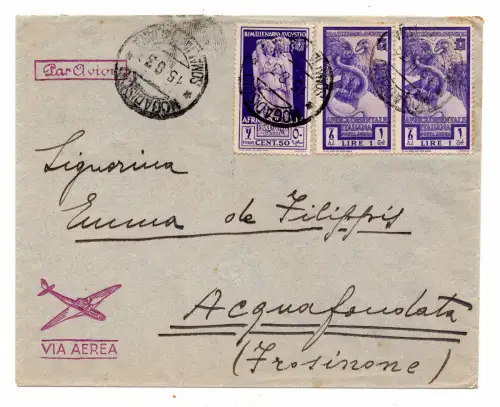 Par Avion
MOGADISCIO
15.0.3
BIMILLENARIO AVGVSTEO
CENT. 50
AFRICA ORIENTALE
ITALIANA
POSTA AEREA
LIRE 1
AFRICA ORIENTALE
ITALIANA
POSTA AEREA
LIRE 1
Signorina
Emma de Filippis
Acquafondata
(Frosinone)
VIA AEREA